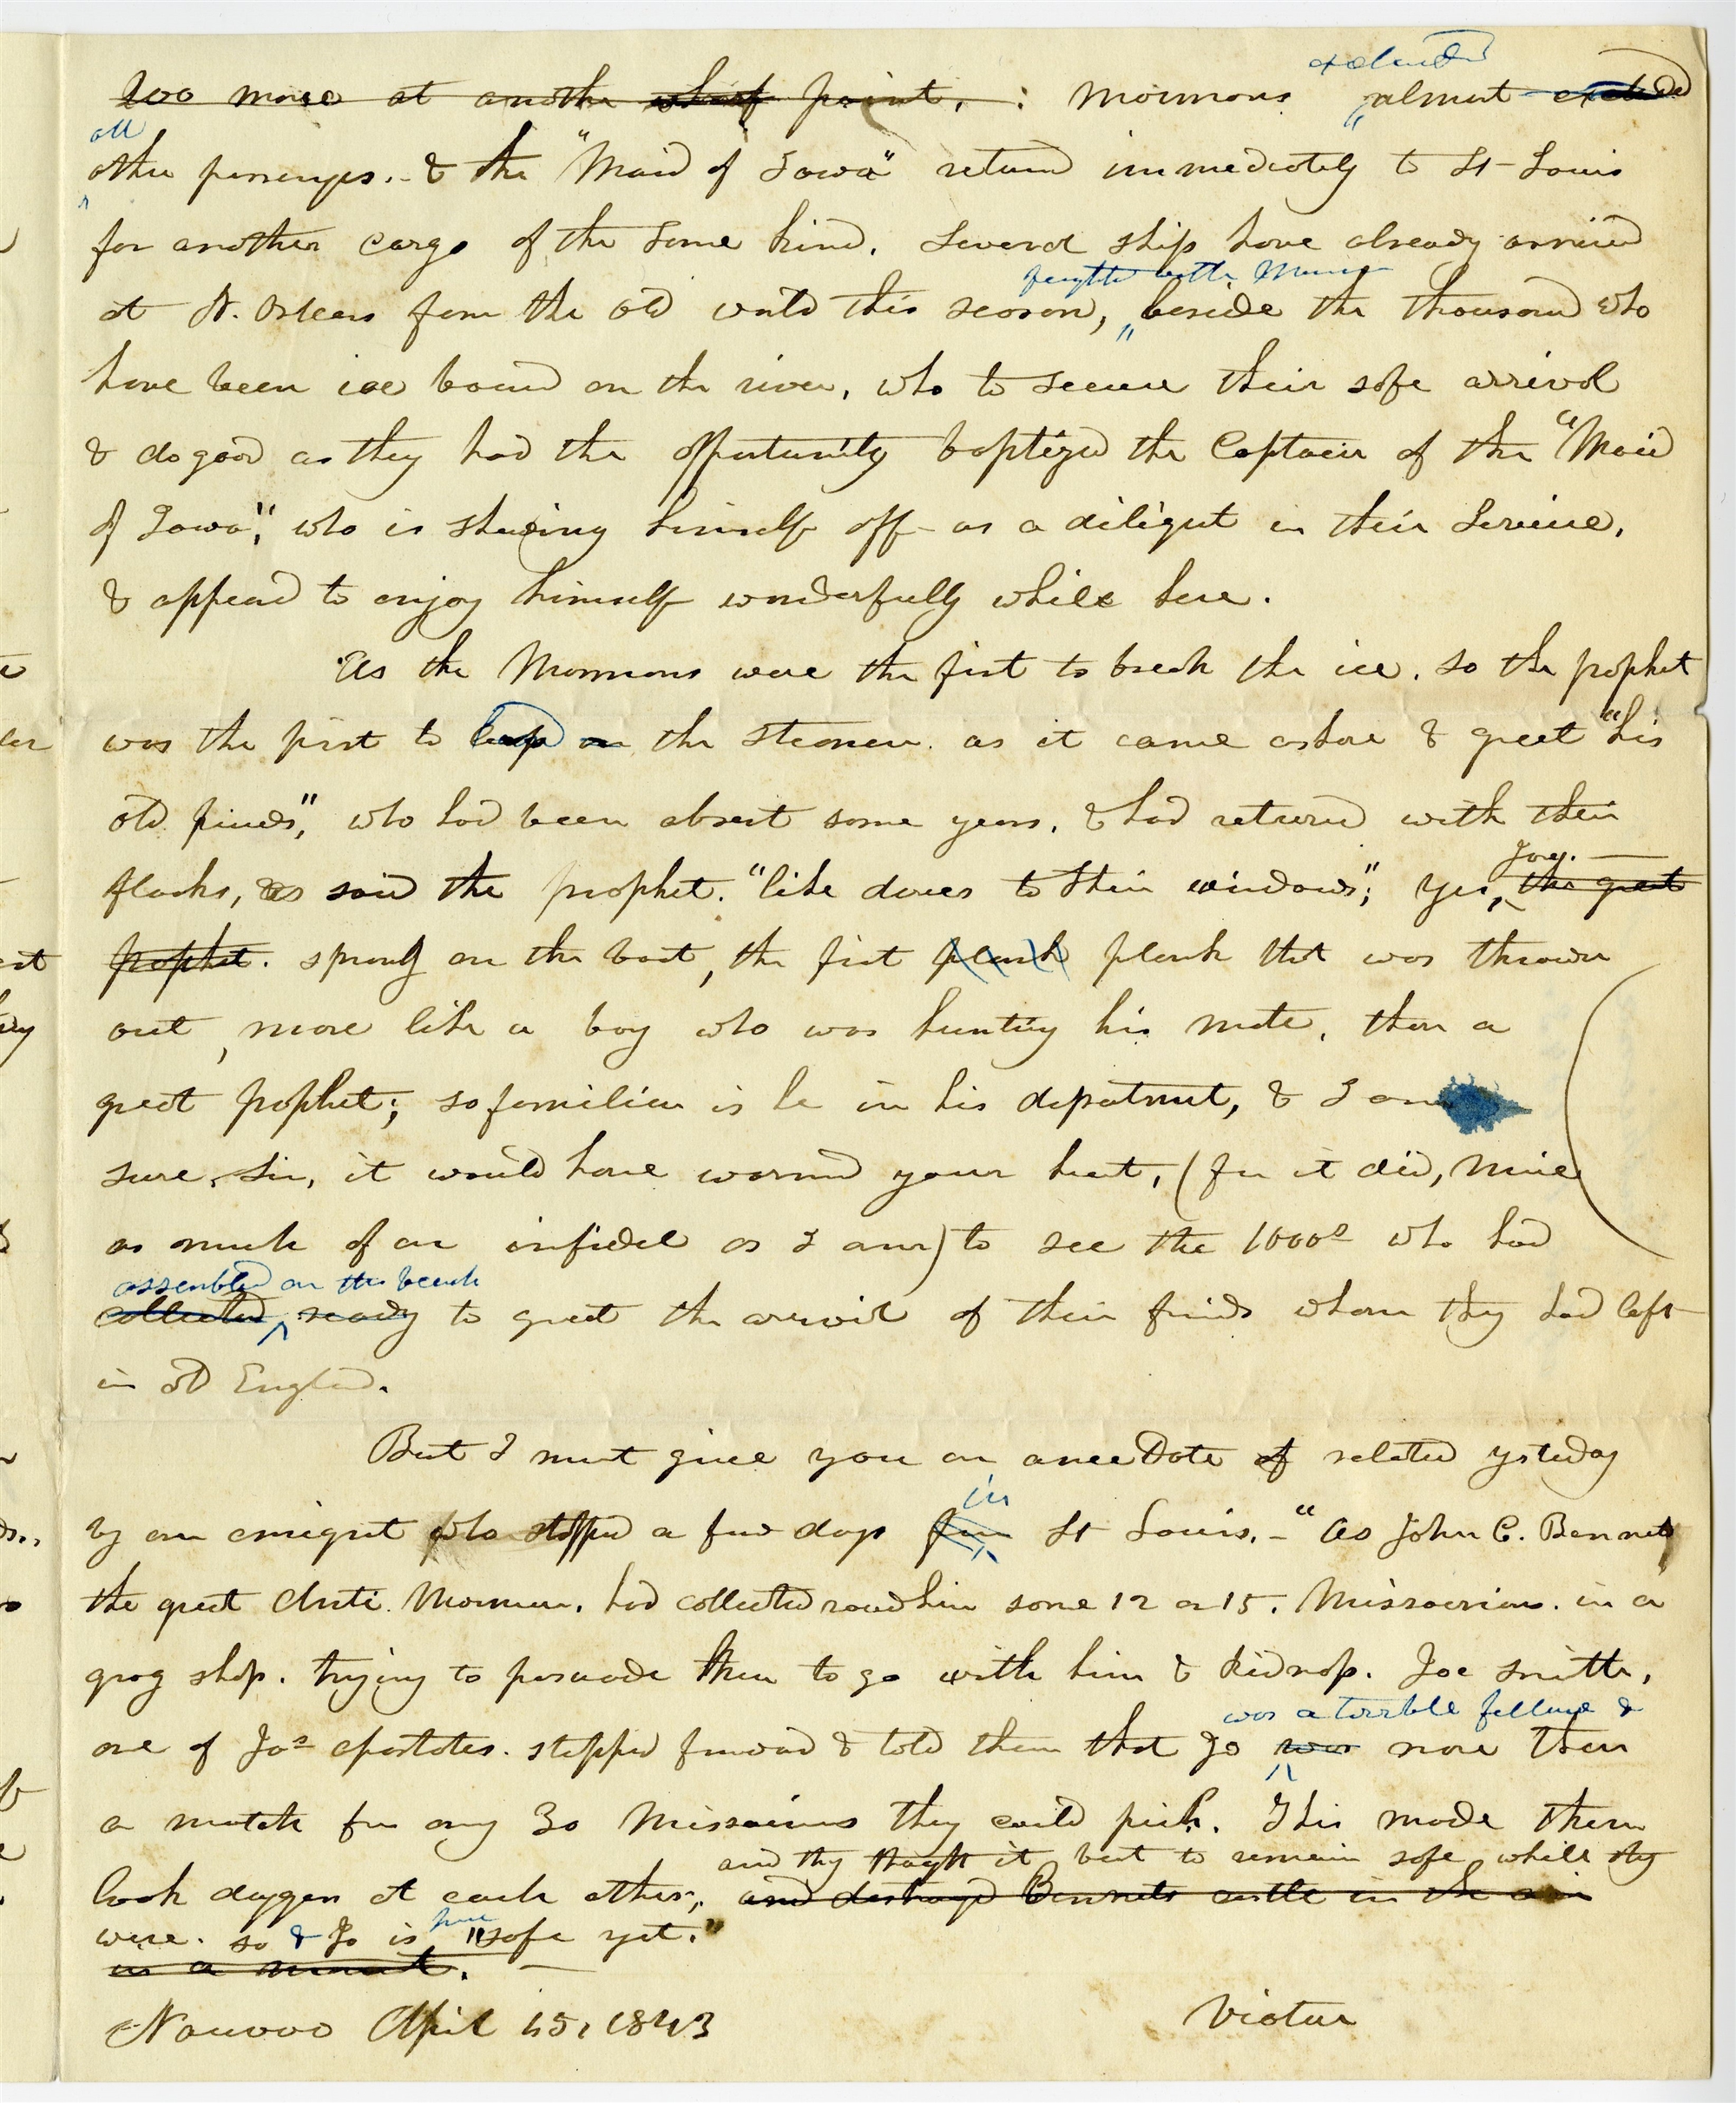 200 more at another wharf point. : Mormons almost excluded
excluded
all
other passengers. - & the "Maid of Iowa" return immediately to St Louis
for another cargo of the same kind. Several ships have already arrived
freightd with Mormons
at N. Orleans from the old world this season, beside the thousand who
have been ice bound on the river, who to secure their safe arrival
& do good as they had the opportunity baptized the Captain of the "Maid
of Iowa", who is showing himself off as a diligent in their service,
& appeard to enjoy himself wonderfully while here.
As the Mormons were the first to break the ice. so the prophet
was the first to leap on the steamer. as it came ashore & greet "his
old friends", who had been absent some years, & had returned with their
flocks, as said the prophet. "like doves to their windows"; yes, the great
Joe.
prophet. sprung on the boat, the first plank plank that was thrown
out, more like a boy who was hunting his mate, than a
great prophet; so familiar is he in his deportment, & I am
sure, Sir, it would have warmd your heart, (for it did, mine
as much of an infidel as I am) to see the 1000s who had
assembled on the beach
collected ready to greet the arrival of their friends whom they had left
in old England.
But I must give you an anecdote of related yesterday
in
by an emigrant who stopped a few days from St Louis. - "As John C. Bennett
the great Anti. Mormon. had collected round him some 12 or 15. Missourians. in a
grog shop. trying to persuade them to go with him & kidnap. Joe Smith,
was a terrible fellow &
one of Jos apostates. stepped forward & told them that Jo was more than
a match for any 30 Missourians they could pick. This made them
and they thought it best to remain safe while they
look daggers at each other; and destroyed Bennetts castle in the air
were. so & Jo is "safe yet."
in a minute.
Nauvoo April 15, 1843
Viator